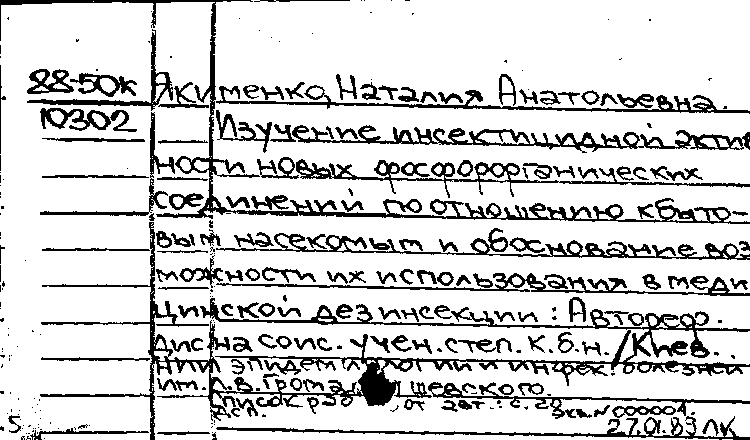 88-50к Якименко, Наталия Анатольевна.
10302 Изучение инсектицидной акти
ности новых фосфорорганических
соединений по отношению к быто-
вым насекомым и обоснование воз
можности их использования в меди
цинской дезинсекции : Автореф.
дис на соис. учен. степ. к.б.н. / Киев.
НИИ эпидемиологии и инфек. болезней
им. Л.В. Громашевского.
Список раб от авт.: с. 20
Экз. N 000001.
27.01.89 ЛК
5